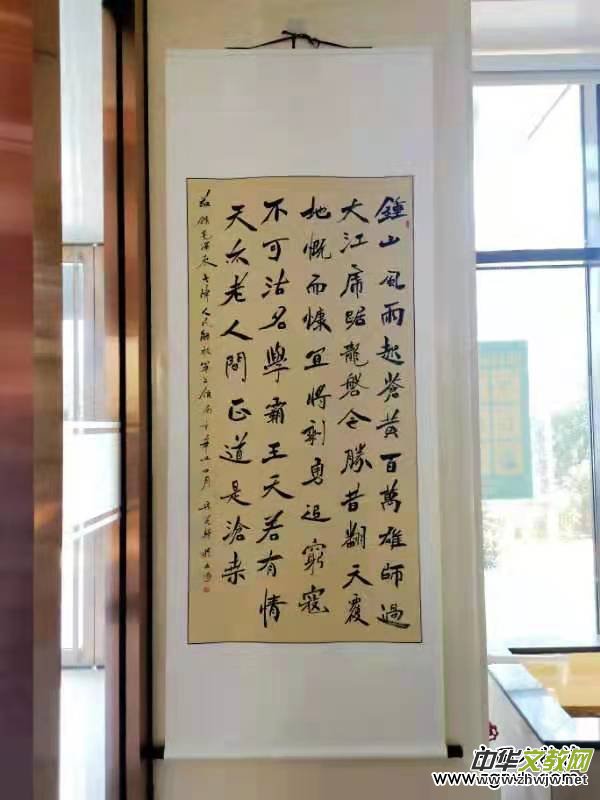 鍾山風雨起蒼黃百萬雄師過
大江虎踞龍盤今勝昔翻天覆
地慨而慷宜將剩勇追窮寇
不可沽名學霸王天若有情
天亦老人間正道是滄桑
錄毛澤東七律人民解放軍占領南京
中华文教网